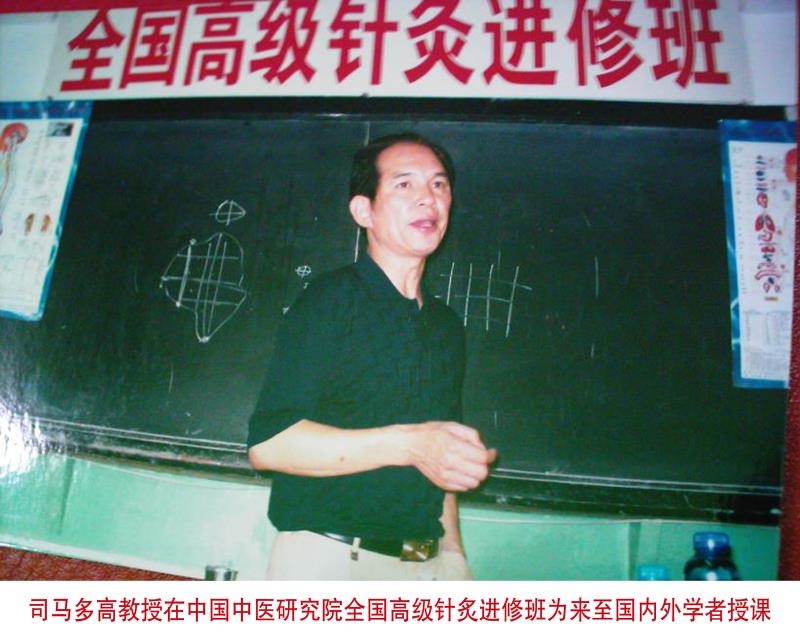 全国高级针灸进修班
司马多高教授在中国中医研究院全国高级针灸进修班为来至国内外学者授课